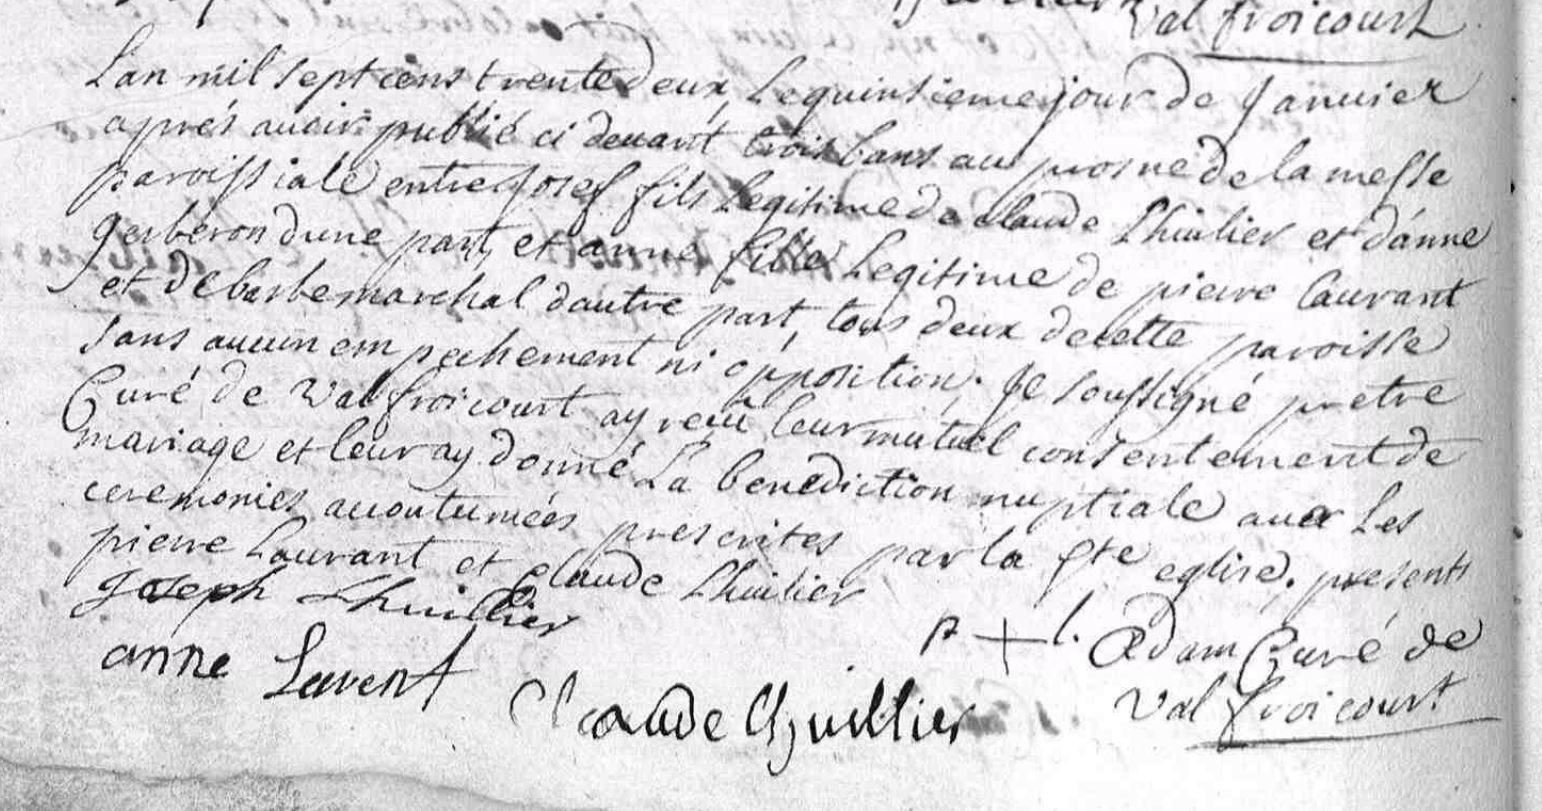 Val froicourt
Lan mil sept cens trente deux, le quinsieme jour de Januier
aprés auoir publié ci deuant trois bans au prosne de la messe
paroissiale entre Josef fils legitime de claude Lhuilier et d'anne
gerberon dune part, et anne fille legitime de pierre Laurant
et de barbe marchal dautre part, tous deux de cette paroisse
sans aucun empechement ni opposition. Je soussigné pretre
Curé de Valfroicourt ay recü leur mutuel consentement de
mariage et leur ay donné La benediction nuptiale auec les
ceremonies accoutumées prescrites par la ste eglise. presents
pierre Laurant et claude Lhuilier
Joseph Lhuillier
p + l. Adam Curé de
Val froicourt
anne Lavent
Claude Lhuillier